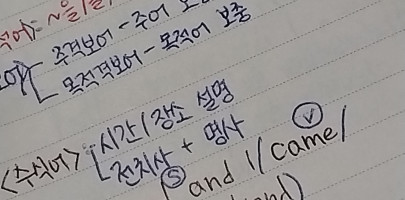 ~을/를
주격보어 - 주어 보
목적격보어 - 목적어 보충
<수식어> 시간/장소 설명
전치사 + 명사
Ⓢ and I/came/ Ⓥ